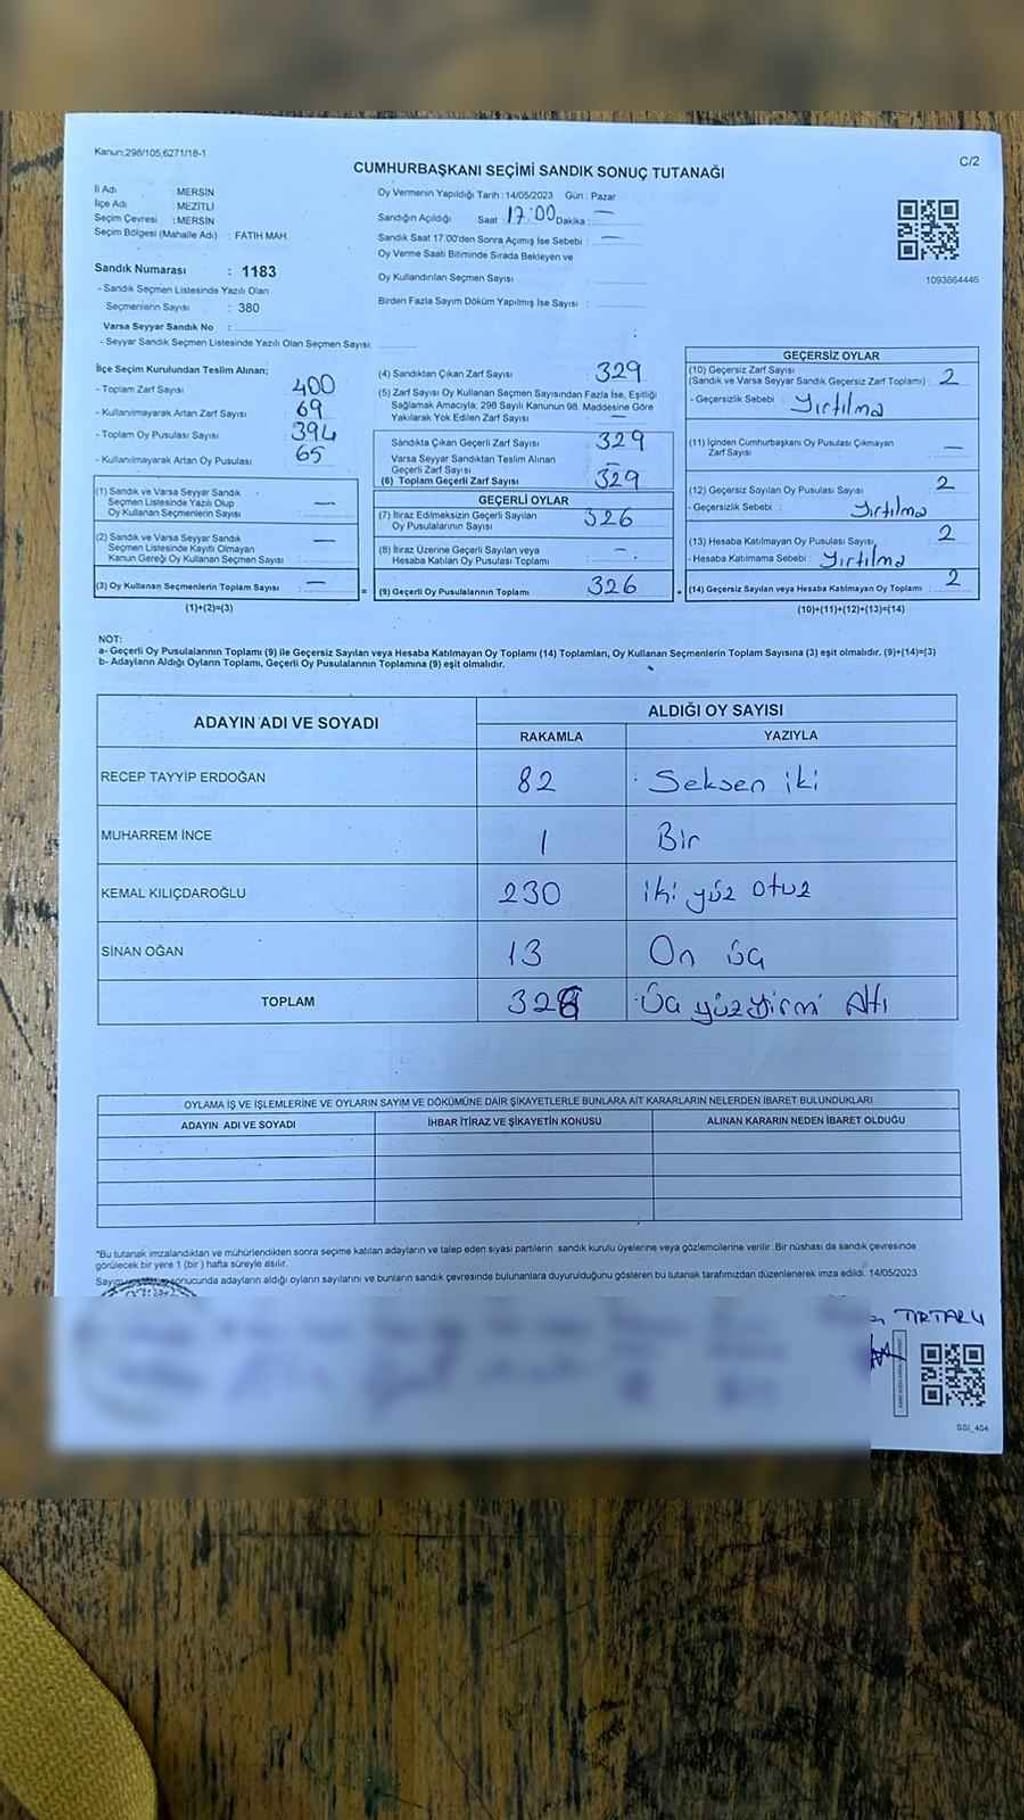 Kanun:298/105,6271/18-1
C/2
CUMHURBAŞKANI SEÇİMİ SANDIK SONUÇ TUTANAĞI
İl Adı : MERSİN
İlçe Adı : MEZİTLİ
Seçim Çevresi : MERSİN
Seçim Bölgesi (Mahalle Adı) : FATİH MAH.
Sandık Numarası : 1183
- Sandık Seçmen Listesinde Yazılı Olan
Seçmenlerin Sayısı : 380
Varsa Seyyar Sandık No :
- Seyyar Sandık Seçmen Listesinde Yazılı Olan Seçmen Sayısı:
Oy Vermenin Yapıldığı Tarih : 14/05/2023 Gün : Pazar
Sandığın Açıldığı Saat : 17:00 Dakika : —
Sandık Saat 17.00'den Sonra Açımış İse Sebebi : —
Oy Verme Saati Bitiminde Sırada Bekleyen ve
Oy Kullandırılan Seçmen Sayısı :
Birden Fazla Sayım Döküm Yapılmış İse Sayısı :
1093664446
İlçe Seçim Kurulundan Teslim Alınan;
- Toplam Zarf Sayısı 400
- Kullanılmayarak Artan Zarf Sayısı 69
- Toplam Oy Pusulası Sayısı 394
- Kullanılmayarak Artan Oy Pusulası 65
(1) Sandık ve Varsa Seyyar Sandık
Seçmen Listesinde Yazılı Olup
Oy Kullanan Seçmenlerin Sayısı —
(2) Sandık ve Varsa Seyyar Sandık
Seçmen Listesinde Kayıtlı Olmayan
Kanun Gereği Oy Kullanan Seçmen Sayısı —
(3) Oy Kullanan Seçmenlerin Toplam Sayısı —
(1)+(2)=(3)
(4) Sandıktan Çıkan Zarf Sayısı 329
(5) Zarf Sayısı Oy Kullanan Seçmen Sayısından Fazla İse, Eşitliği
Sağlamak Amacıyla, 298 Sayılı Kanunun 98. Maddesine Göre
Yakılarak Yok Edilen Zarf Sayısı —
Sandıkta Çıkan Geçerli Zarf Sayısı 329
Varsa Seyyar Sandıktan Teslim Alınan
Geçerli Zarf Sayısı —
(6) Toplam Geçerli Zarf Sayısı 329
GEÇERLİ OYLAR
(7) İtiraz Edilmeksizin Geçerli Sayılan
Oy Pusulalarının Sayısı 326
(8) İtiraz Üzerine Geçerli Sayılan veya
Hesaba Katılan Oy Pusulası Toplamı —
= (9) Geçerli Oy Pusulalarının Toplamı 326
GEÇERSİZ OYLAR
(10) Geçersiz Zarf Sayısı
(Sandık ve Varsa Seyyar Sandık Geçersiz Zarf Toplamı) 2
- Geçersizlik Sebebi : Yırtılma
(11) İçinden Cumhurbaşkanı Oy Pusulası Çıkmayan
Zarf Sayısı —
(12) Geçersiz Sayılan Oy Pusulası Sayısı 2
- Geçersizlik Sebebi : Yırtılma
(13) Hesaba Katılmayan Oy Pusulası Sayısı 2
- Hesaba Katılmama Sebebi : Yırtılma
+ (14) Geçersiz Sayılan veya Hesaba Katılmayan Oy Toplamı 2
(10)+(11)+(12)+(13)=(14)
NOT:
a- Geçerli Oy Pusulalarının Toplamı (9) ile Geçersiz Sayılan veya Hesaba Katılmayan Oy Toplamı (14) Toplamları, Oy Kullanan Seçmenlerin Toplam Sayısına (3) eşit olmalıdır. (9)+(14)=(3)
b- Adayların Aldığı Oyların Toplamı, Geçerli Oy Pusulalarının Toplamına (9) eşit olmalıdır.
ADAYIN ADI VE SOYADI ALDIĞI OY SAYISI
RAKAMLA YAZIYLA
RECEP TAYYİP ERDOĞAN 82 Seksen iki
MUHARREM İNCE 1 Bir
KEMAL KILIÇDAROĞLU 230 iki yüz otuz
SİNAN OĞAN 13 On üç
TOPLAM 326 Üç yüz yirmi Altı
OYLAMA İŞ VE İŞLEMLERİNE VE OYLARIN SAYIM VE DÖKÜMÜNE DAİR ŞİKAYETLERLE BUNLARA AİT KARARLARIN NELERDEN İBARET BULUNDUKLARI
ADAYIN ADI VE SOYADI İHBAR İTİRAZ VE ŞİKAYETİN KONUSU ALINAN KARARIN NEDEN İBARET OLDUĞU
*Bu tutanak imzalandıktan ve mühürlendikten sonra seçime katılan adayların ve talep eden siyasi partilerin sandık kurulu üyelerine veya gözlemcilerine verilir. Bir nüshası da sandık çevresinde
görülecek bir yere 1 (bir) hafta süreyle asılır.
sonucunda adayların aldığı oyların sayılarını ve bunların sandık çevresinde bulunanlara duyurulduğunu gösteren bu tutanak tarafımızdan düzenlenerek imza edildi. 14/05/2023